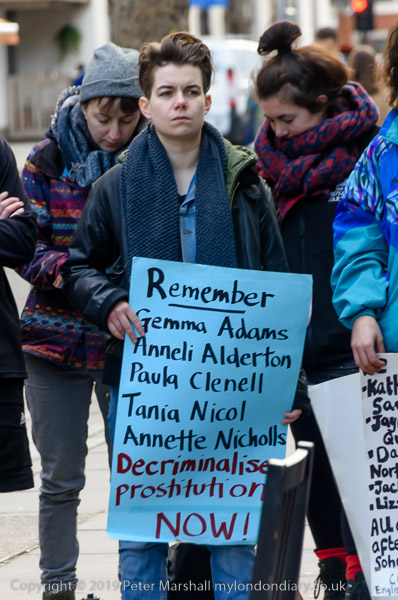 Remember
Gemma Adams
Anneli Alderton
Paula Clenell
Tania Nicol
Annette Nicholls
Decriminalise
prostitution
NOW!
All
after
Copyright © 2019 Peter Marshall mylondondiary.co.uk